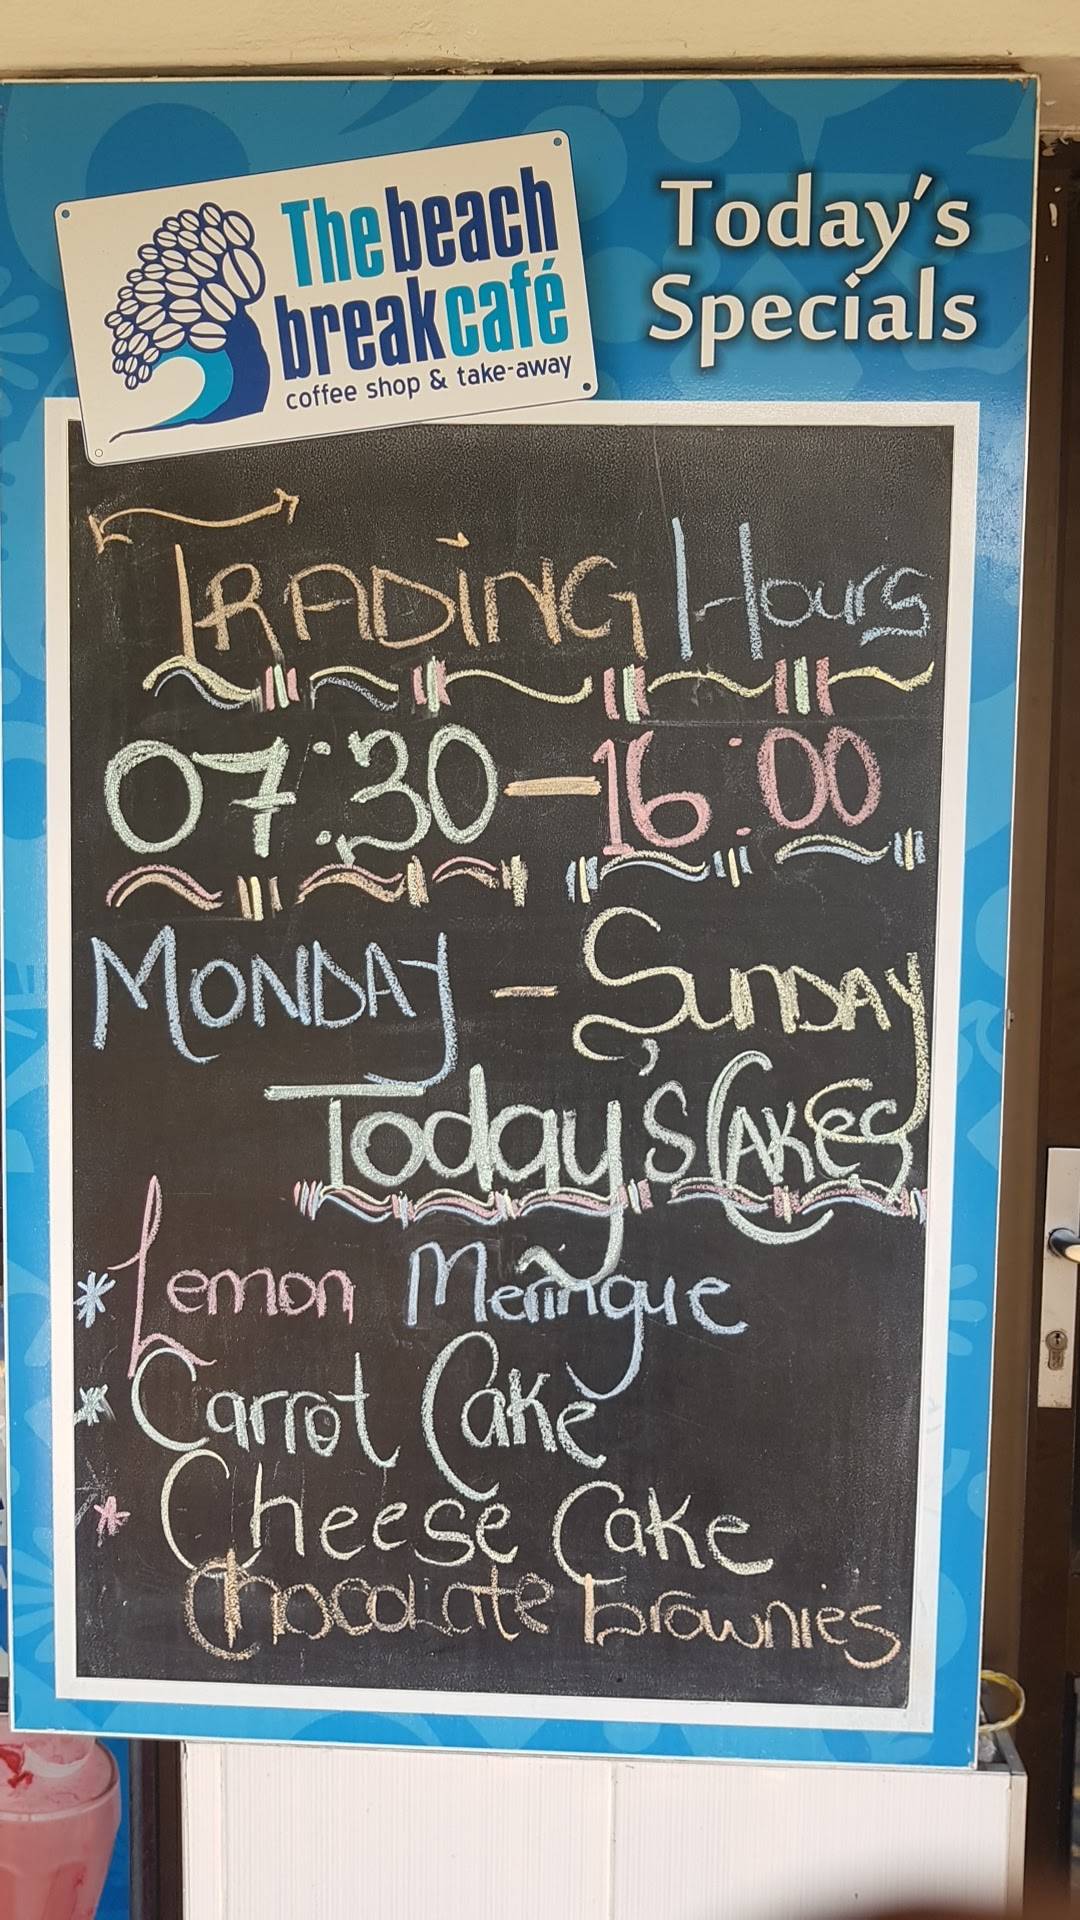 The beach
break café
coffee shop & take-away
Today's
Specials
TRADING Hours
07:30 – 16:00
MONDAY – SUNDAY
Today's CAKES
* Lemon Meringue
* Carrot Cake
* Cheese Cake
Chocolate brownies